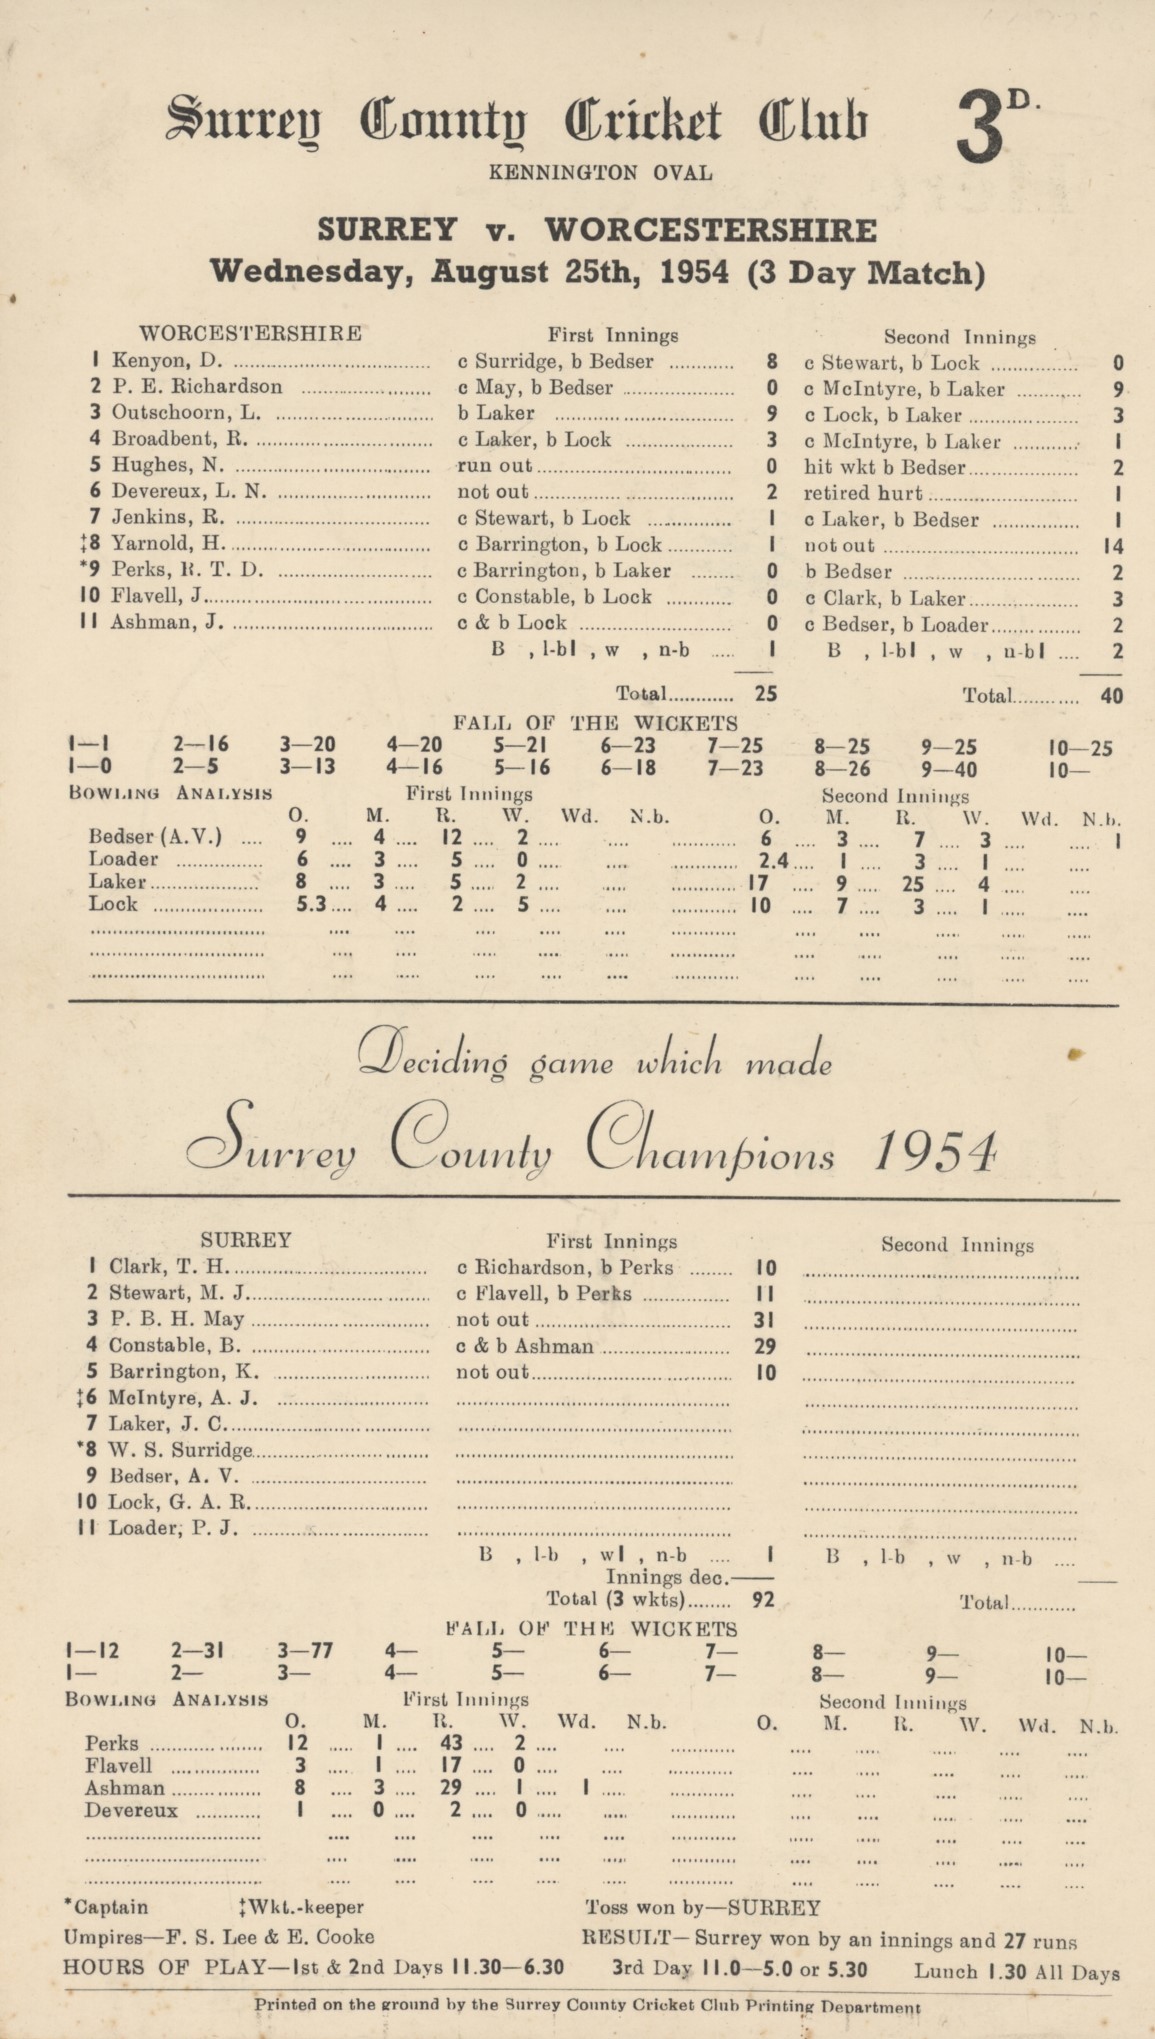 Surrey County Cricket Club 3D.
KENNINGTON OVAL
SURREY v. WORCESTERSHIRE
Wednesday, August 25th, 1954 (3 Day Match)
WORCESTERSHIRE First Innings Second Innings
1 Kenyon, D. c Surridge, b Bedser 8 c Stewart, b Lock 0
2 P. E. Richardson c May, b Bedser 0 c McIntyre, b Laker 9
3 Outschoorn, L. b Laker 9 c Lock, b Laker 3
4 Broadbent, R. c Laker, b Lock 3 c McIntyre, b Laker 1
5 Hughes, N. run out 0 hit wkt b Bedser 2
6 Devereux, L. N. not out 2 retired hurt 1
7 Jenkins, R. c Stewart, b Lock 1 c Laker, b Bedser 1
‡8 Yarnold, H. c Barrington, b Lock 1 not out 14
*9 Perks, R. T. D. c Barrington, b Laker 0 b Bedser 2
10 Flavell, J. c Constable, b Lock 0 c Clark, b Laker 3
11 Ashman, J. c & b Lock 0 c Bedser, b Loader 2
B , l-b1 , w , n-b 1 B , l-b1 , w , n-b1 2
Total 25 Total 40
FALL OF THE WICKETS
1—1 2—16 3—20 4—20 5—21 6—23 7—25 8—25 9—25 10—25
1—0 2—5 3—13 4—16 5—16 6—18 7—23 8—26 9—40 10—
BOWLING ANALYSIS First Innings Second Innings
O. M. R. W. Wd. N.b. O. M. R. W. Wd. N.b.
Bedser (A.V.) 9 4 12 2 6 3 7 3 1
Loader 6 3 5 0 2.4 1 3 1
Laker 8 3 5 2 17 9 25 4
Lock 5.3 4 2 5 10 7 3 1
Deciding game which made
Surrey County Champions 1954
SURREY First Innings Second Innings
1 Clark, T. H. c Richardson, b Perks 10
2 Stewart, M. J. c Flavell, b Perks 11
3 P. B. H. May not out 31
4 Constable, B. c & b Ashman 29
5 Barrington, K. not out 10
‡6 McIntyre, A. J.
7 Laker, J. C.
*8 W. S. Surridge
9 Bedser, A. V.
10 Lock, G. A. R.
11 Loader, P. J.
B , l-b , w1 , n-b 1 B , l-b , w , n-b
Innings dec.
Total (3 wkts) 92 Total
FALL OF THE WICKETS
1—12 2—31 3—77 4— 5— 6— 7— 8— 9— 10—
1— 2— 3— 4— 5— 6— 7— 8— 9— 10—
BOWLING ANALYSIS First Innings Second Innings
O. M. R. W. Wd. N.b. O. M. R. W. Wd. N.b.
Perks 12 1 43 2
Flavell 3 1 17 0
Ashman 8 3 29 1 1
Devereux 1 0 2 0
*Captain ‡Wkt.-keeper Toss won by—SURREY
Umpires—F. S. Lee & E. Cooke RESULT—Surrey won by an innings and 27 runs
HOURS OF PLAY—1st & 2nd Days 11.30—6.30 3rd Day 11.0—5.0 or 5.30 Lunch 1.30 All Days
Printed on the ground by the Surrey County Cricket Club Printing Department